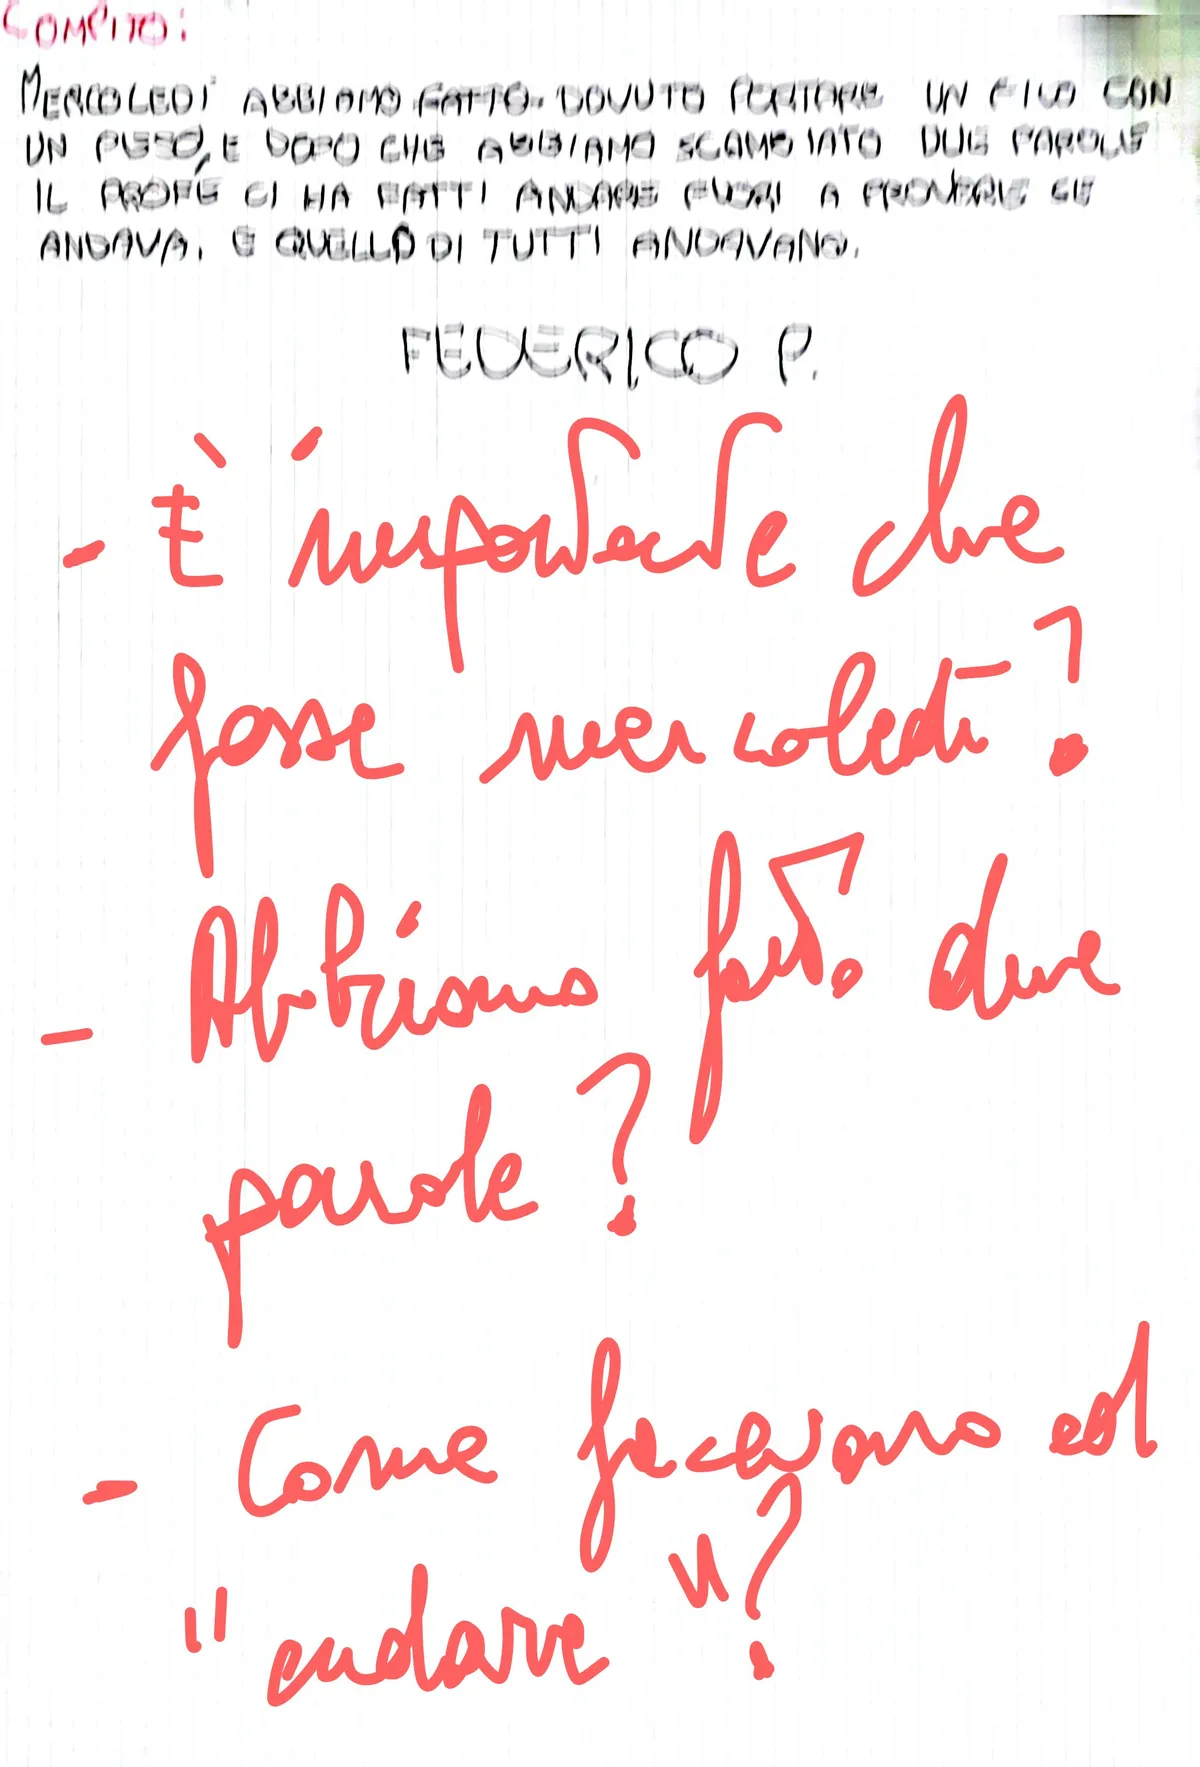 COMPITO:
MERCOLEDI' ABBIAMO FATTO DOVUTO PORTARE UN FILO CON
UN PESO, E DOPO CHE ABBIAMO SCAMBIATO DUE PAROLE
IL PROFE CI HA FATTI ANDARE FUORI A PROVARE SE
ANDAVA. E QUELLO DI TUTTI ANDAVANO.
FEDERICO P.
- È importante che
fosse mercoledì?
- Abbiamo fatto due
parole?
- Come facevano ad
"andare"?